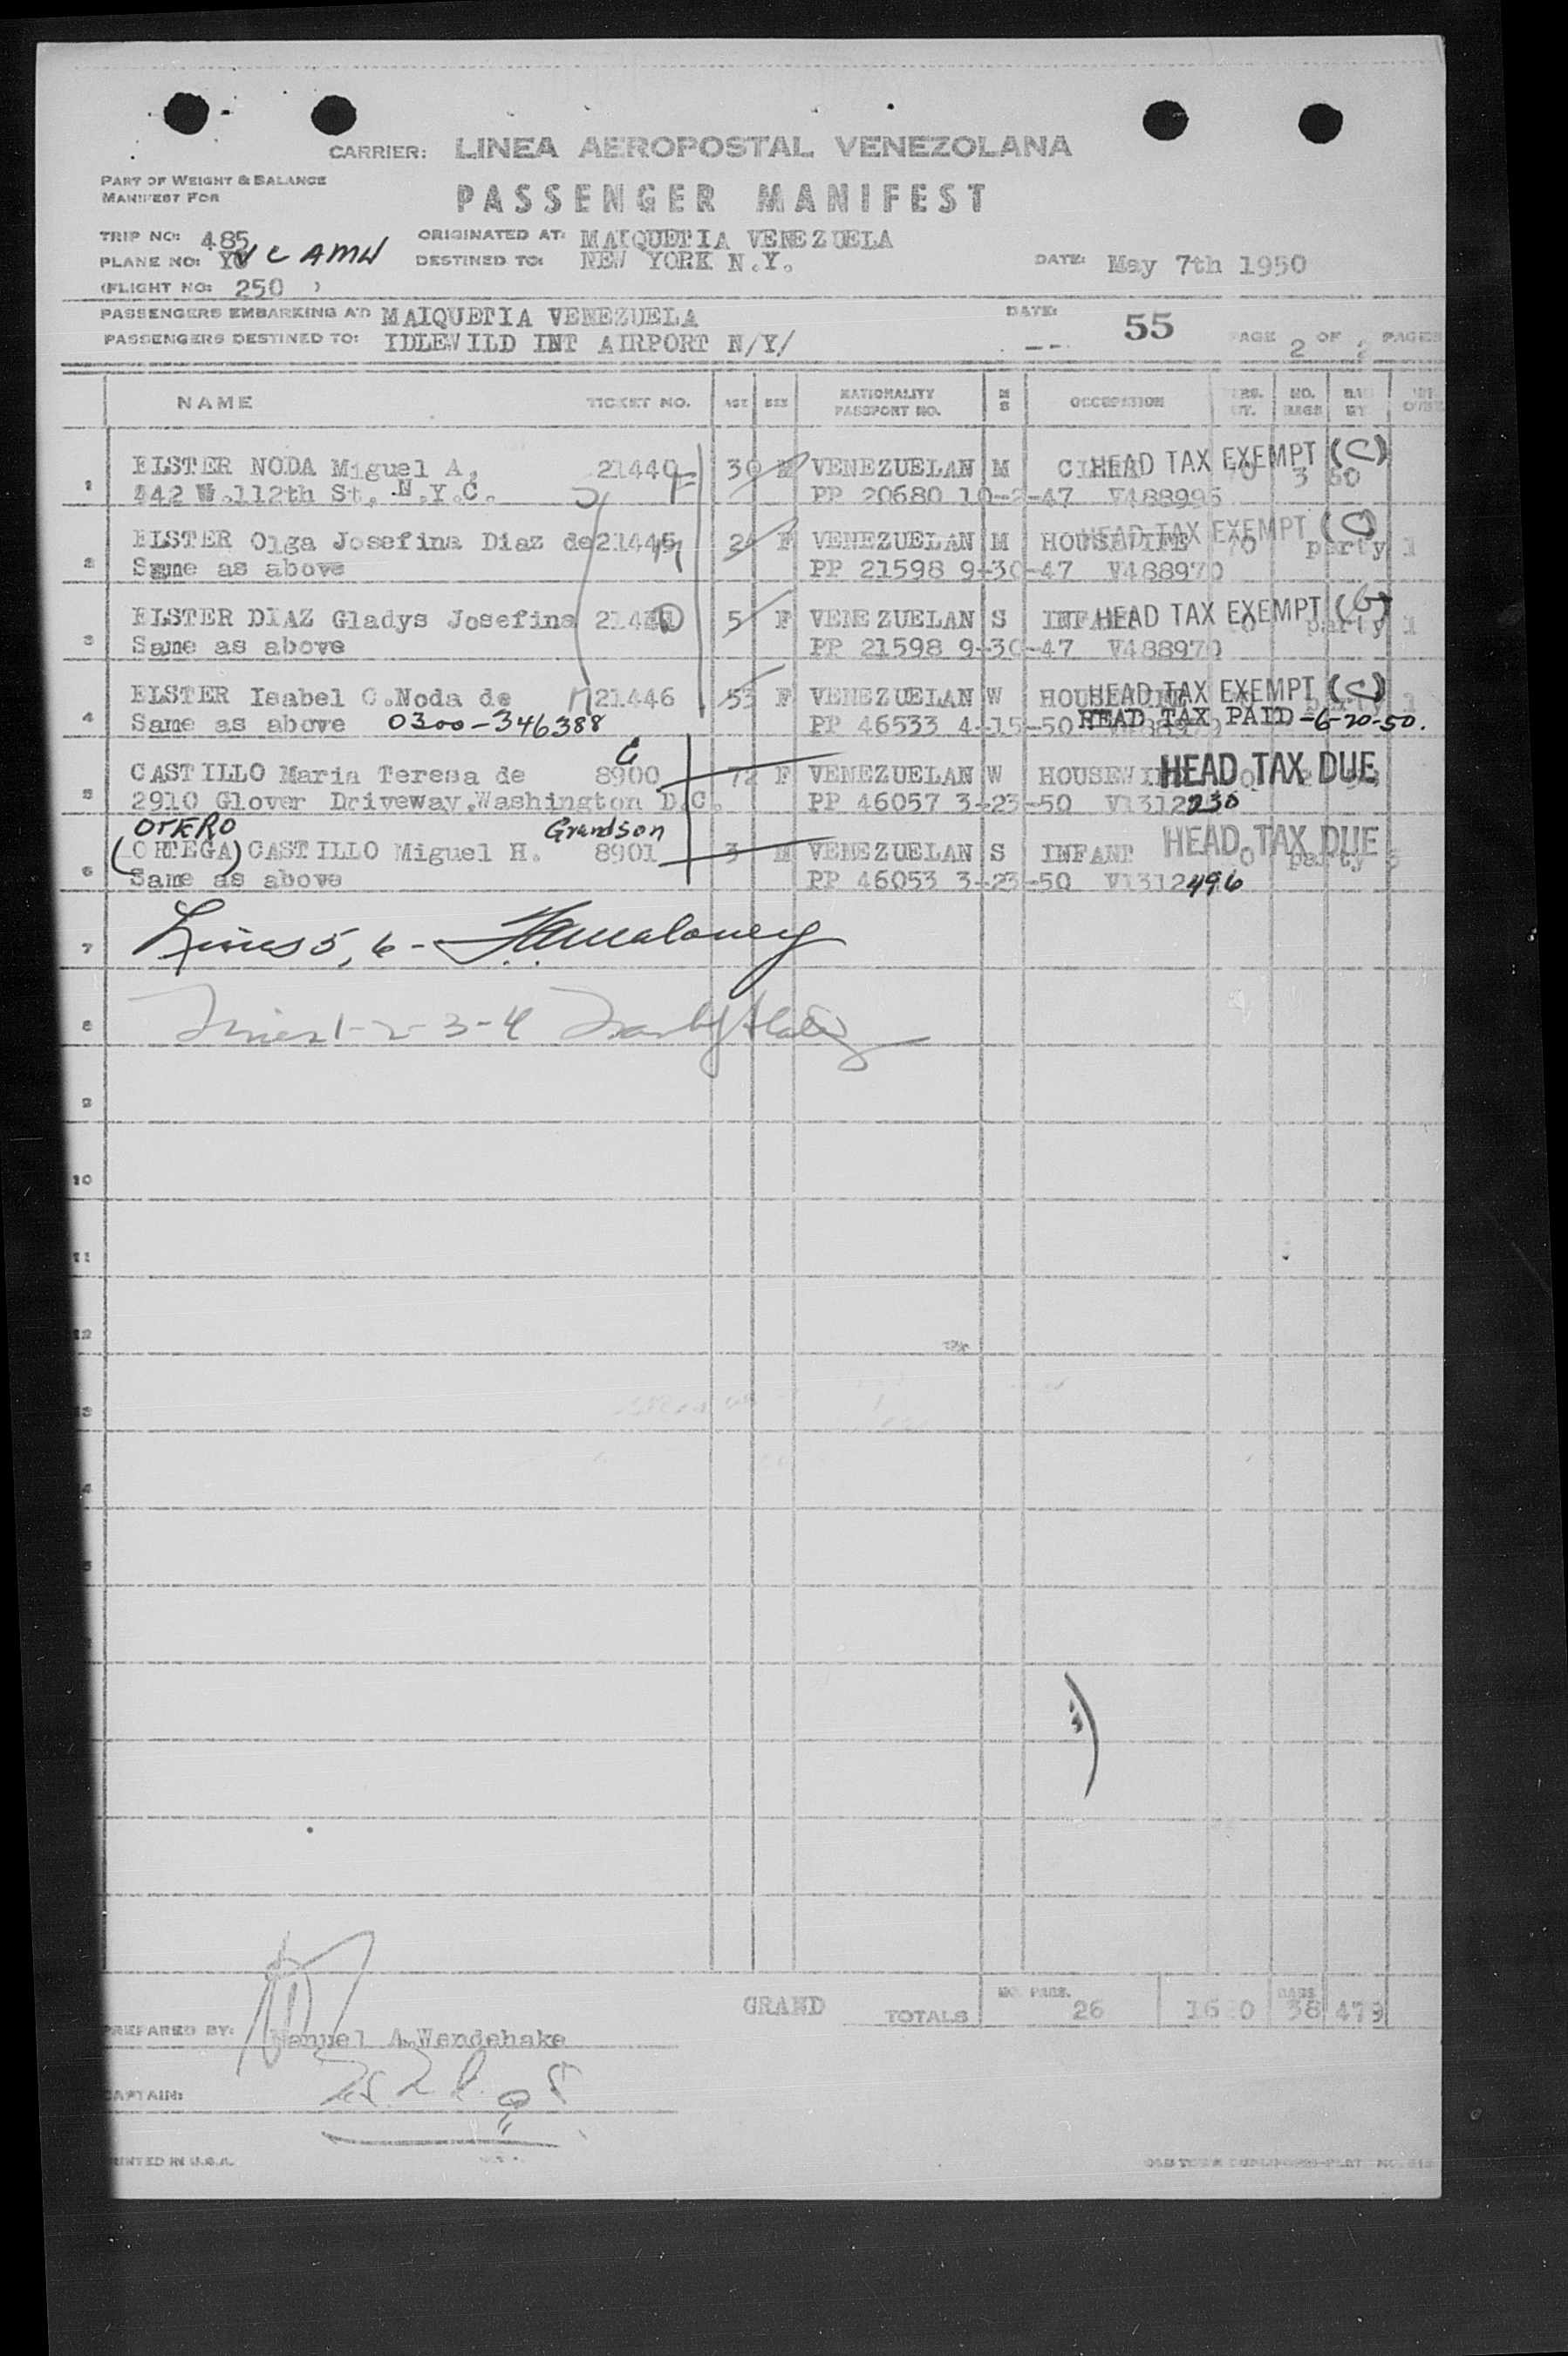 CARRIER: LINEA AEROPOSTAL VENEZOLANA
PART OF WEIGHT & BALANCE
MANIFEST FOR
PASSENGER MANIFEST
TRIP NO: 485
ORIGINATED AT: MAIQUETIA VENEZUELA
PLANE NO: YV C AMW
DESTINED TO: NEW YORK N.Y.
DATE: May 7th 1950
(FLIGHT NO: 250 )
PASSENGERS EMBARKING AT: MAIQUETIA VENEZUELA
DATE: 55
PASSENGERS DESTINED TO: IDLEWILD INT AIRPORT N/Y/
PAGE 2 OF 2 PAGES
NAME TICKET NO. AGE SEX NATIONALITY PASSPORT NO. M S OCCUPATION PERS. WT. NO. BAGS BAG WT.
1 ELSTER NODA Miguel A. 21440 30 M VENEZUELAN M HEAD TAX EXEMPT (C) 70 3 60
442 W.112th St. N.Y.C. PP 20680 10-2-47 V488995
2 ELSTER Olga Josefina Diaz de 21445 F VENEZUELAN M HOUSEWIFE HEAD TAX EXEMPT (C) 70 party 1
Same as above PP 21598 9-30-47 V488970
3 ELSTER DIAZ Gladys Josefina 5 F VENEZUELAN S INFANT HEAD TAX EXEMPT (G) party 1
Same as above PP 21598 9-30-47 V488970
4 ELSTER Isabel C.Noda de 21446 53 F VENEZUELAN W HEAD TAX EXEMPT (C) 1
Same as above 0300-346388 PP 46533 4-15-50 HEAD TAX PAID-6-20-50.
5 CASTILLO Maria Teresa de 8900 72 F VENEZUELAN W HOUSEWIFE HEAD TAX DUE
2910 Glover Driveway,Washington D.C. PP 46057 3-23-50 V1312230
OTERO Grandson
6 (ORTEGA) CASTILLO Miguel H. 8901 3 M VENEZUELAN S INFANT HEAD TAX DUE party
Same as above PP 46053 3-23-50 V1312496
7 Lines 5, 6 - Maloney
8 Lines 1-2-3-4
9
10
11
12
GRAND TOTALS NO. PASS. 26 BAGS 38 479
PREPARED BY: Manuel A.Wendehake
CAPTAIN:
PRINTED IN U.S.A.